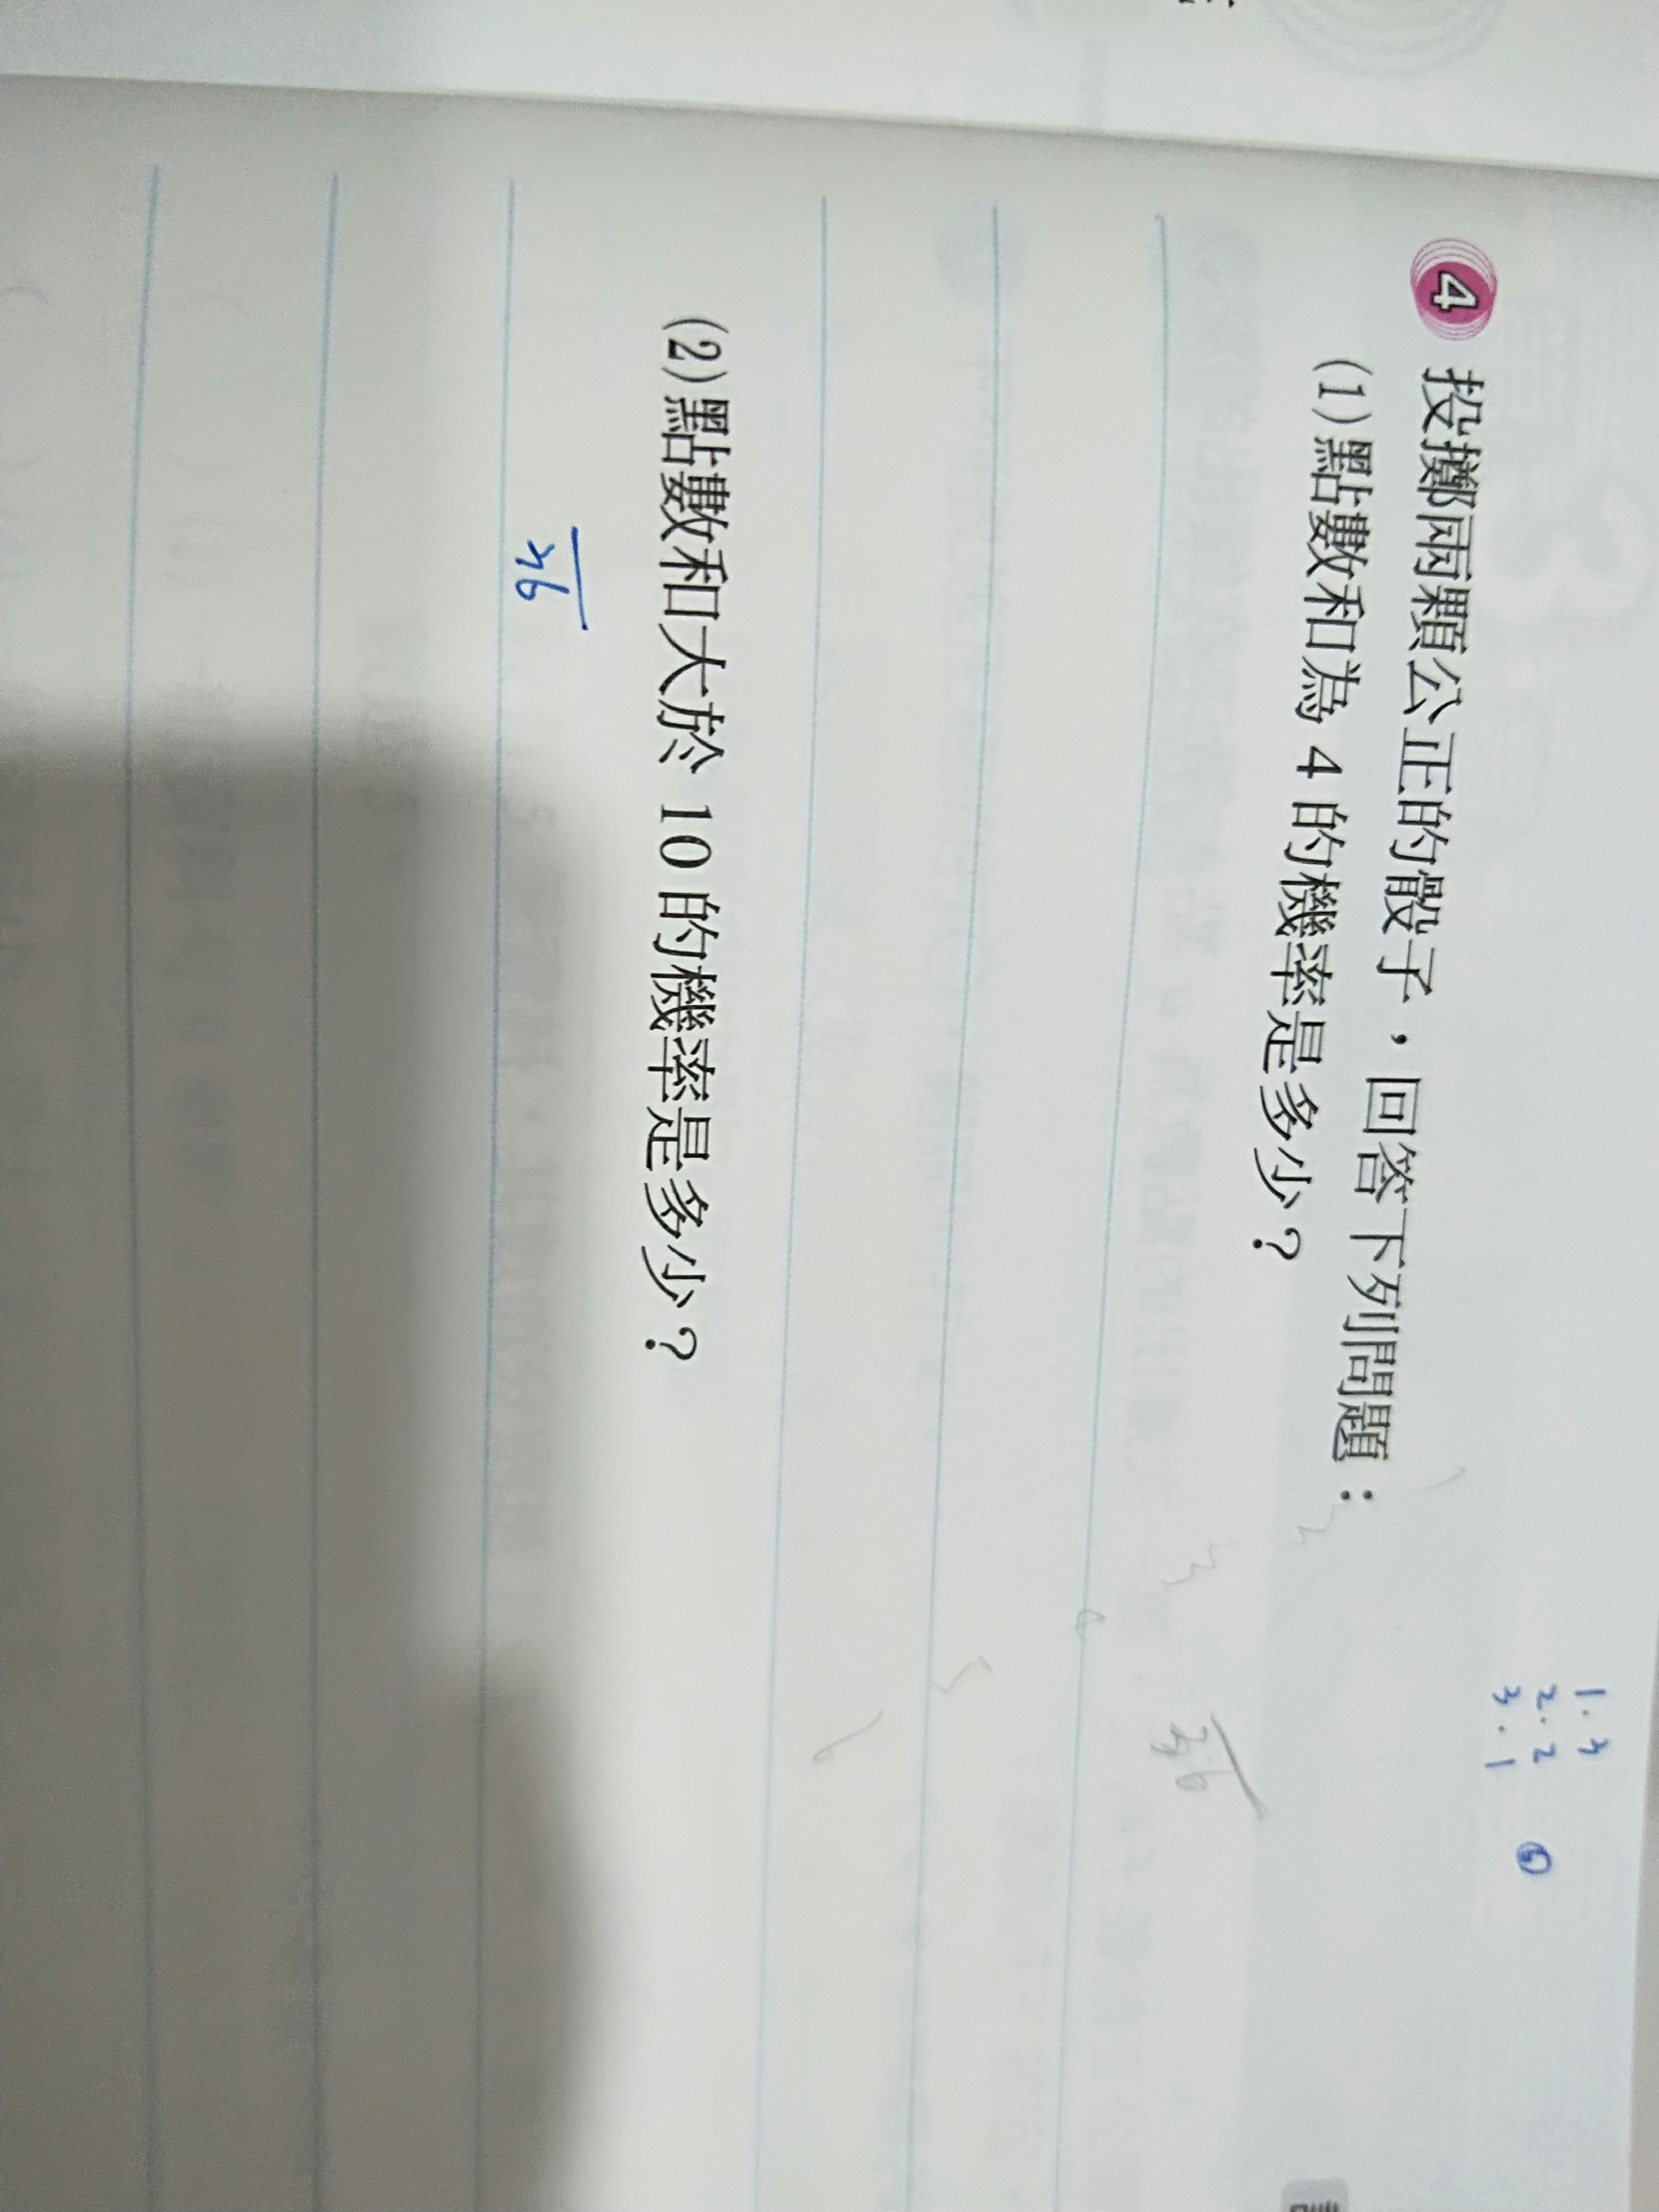 1.3
2.2
3.1
4 投擲兩顆公正的骰子，回答下列問題：
(1)點數和為 4 的機率是多少？
36
(2)點數和大於 10 的機率是多少？
36